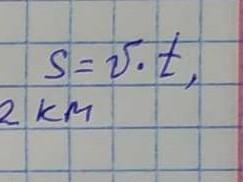 S = v · t,
2 км